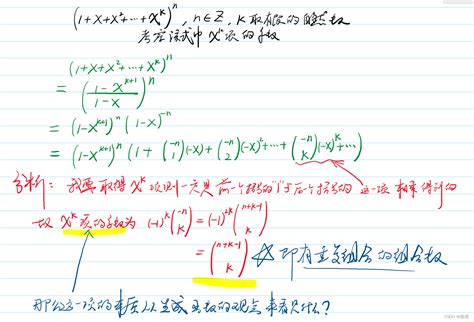 (1+x+x²+⋯+x^k)^n, n∈Z, k取有限的自然数
考察该式中 x^k 项的系数
(1+x+x²+⋯+x^k)^n
= ((1-x^{k+1})/(1-x))^n
= (1-x^{k+1})^n (1-x)^{-n}
= (1-x^{k+1})^n (1+(-n 1)(-x)+(-n 2)(-x)²+⋯+(-n k)(-x)^k+⋯)
分析: 我要取得 x^k 项则一定是前一个括号的"1"与后个括号的这一项相乘得到的
故 x^k 项的系数为 (-1)^k (-n k) = (-1)^{2k} (n+k-1 k)
= (n+k-1 k) ☆ 即有重复组合的组合数
那么这一项的本质从生成函数的观点来看是什么?